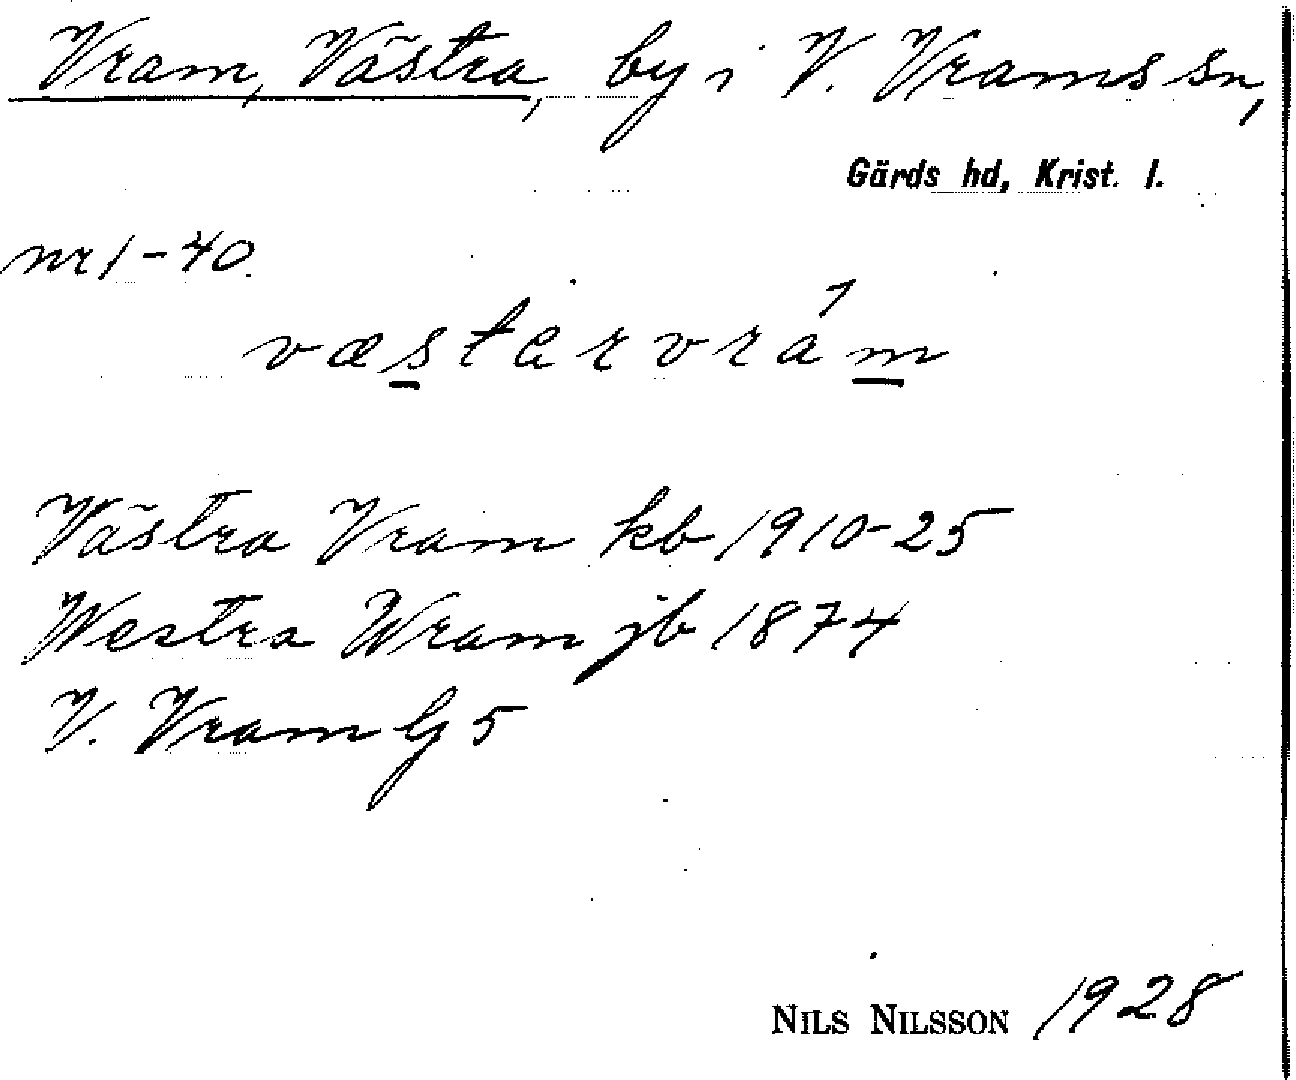 Vram, Västra, by i V. Vrams sn,
Gärds hd, Krist. l.
nr 1-40.
væstarvrám
Västra Vram kb 1910-25
Westra Wram jb 1874
V. Vram Gj 5
NILS NILSSON 1928